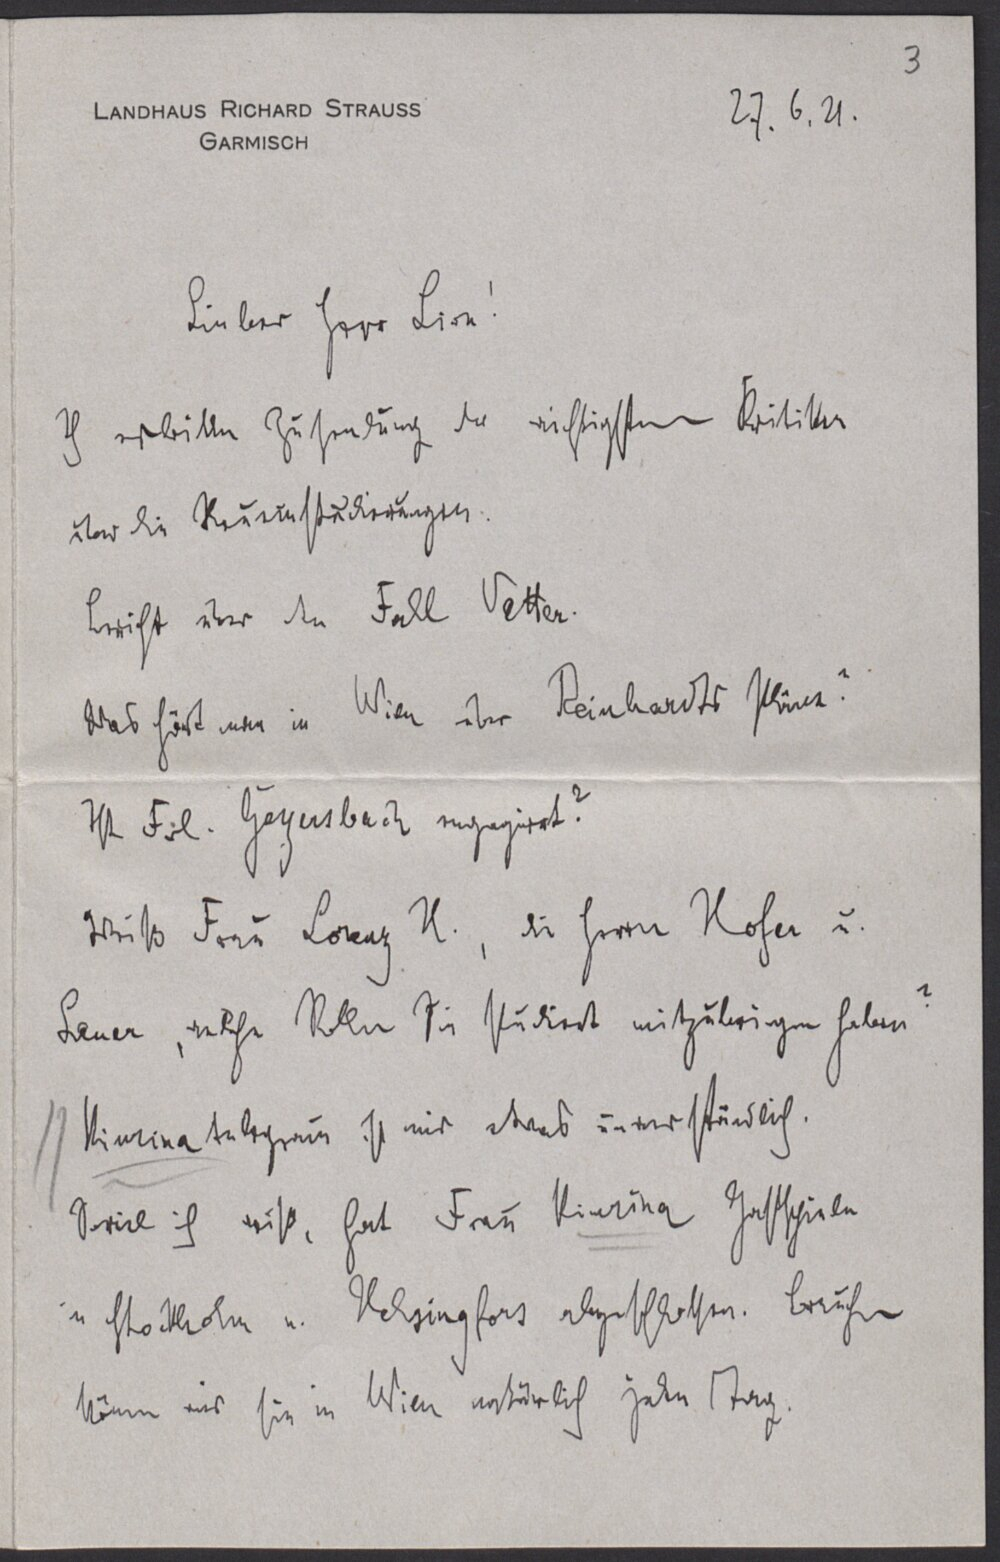 3
LANDHAUS RICHARD STRAUSS
GARMISCH
27. 6. 21.
Lieber Herr Lion!
Ich erbitte Zusendung der wichtigsten Kritiken
über die Neueinstudierungen.
Bericht über den Fall Vetter.
Was hört man in Wien über Reinhardts Pläne?
Ist Frl. Geyersbach engagirt?
Weiß Frau Lorenz H., die Herrn Hofer u.
, welche Rollen Sie studiert mitzubringen haben?
Kiurina telegram ist mir etwas unverständlich.
Soviel ich weiß, hat Frau Kiurina Gastspiele
in Stockholm u. Helsingfors abgeschlossen. Brauchen
können wir sie in Wien natürlich jeden Tag.